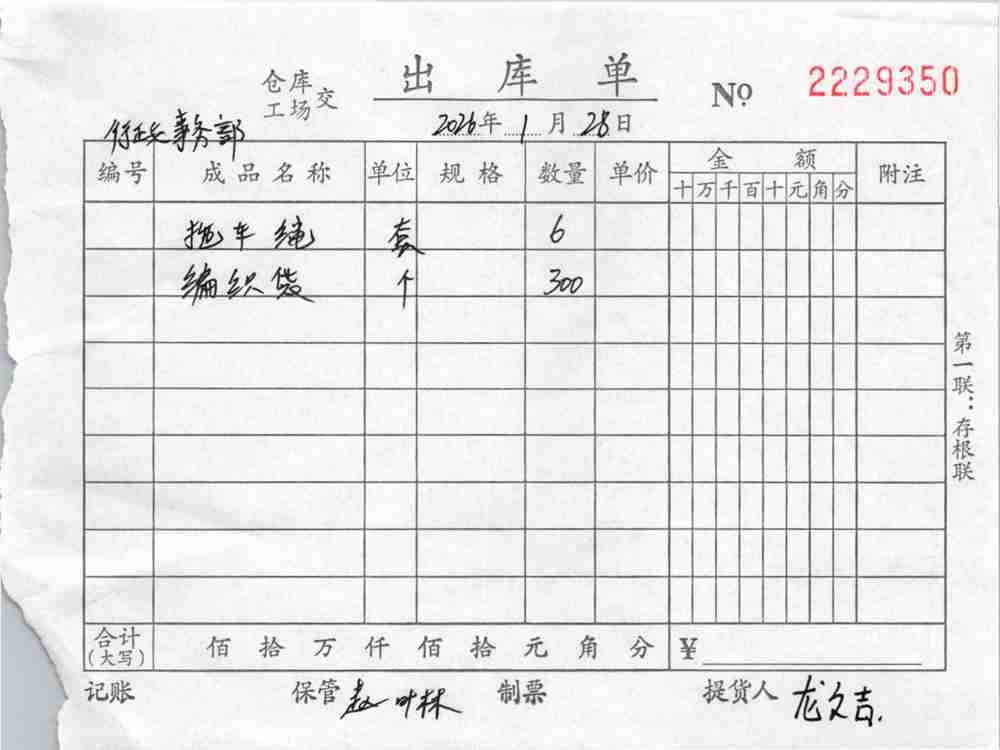 仓库 出库单
工场 交 № 2229350
行政事务部 2026年1月28日
编号 成品名称 单位 规格 数量 单价 金额 附注
十 万 千 百 十 元 角 分
拖车绳 套 6
编织袋 个 300
第一联：存根联
合计(大写) 佰 拾 万 仟 佰 拾 元 角 分 ¥
记账 保管 赵叶林 制票 提货人 龙文吉.